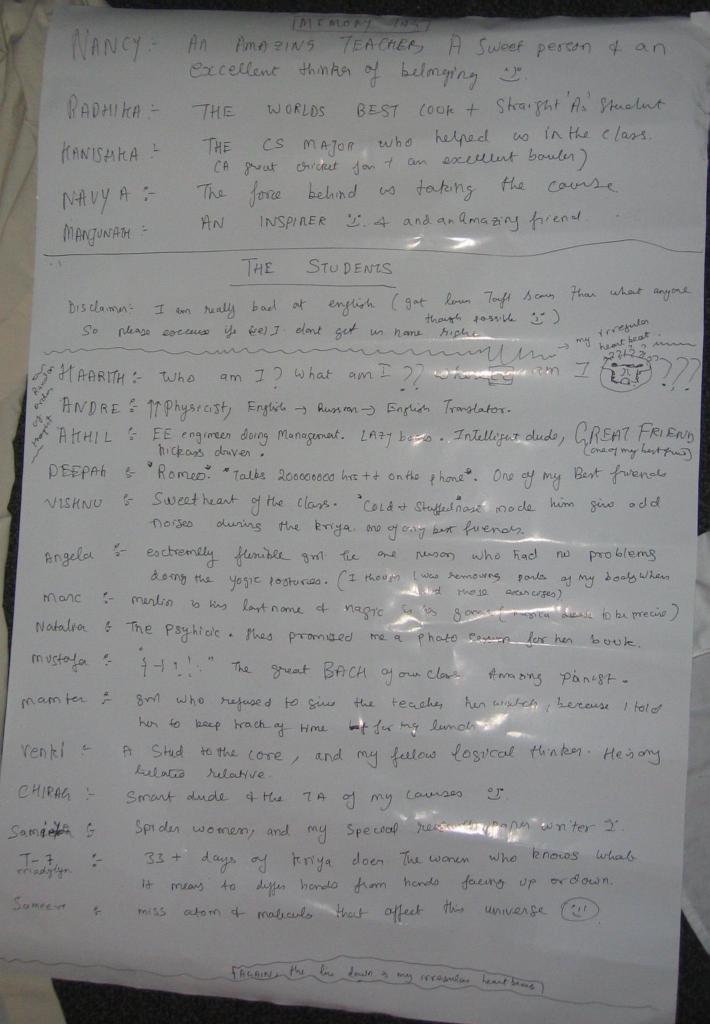 MEMORY
NANCY :- AN AMAZING TEACHER, A sweet person & an
excellent thinker of belonging
RADHIKA :- THE WORLDS BEST COOK + Straight 'As' Student
KANISHKA :- THE CS MAJOR who helped us in the class.
(A great cricket fan + an excellent bowler)
NAVYA :- The force behind us taking the course
MANJUNATH :- AN INSPIRER & and an Amazing friend.
THE STUDENTS
Disclaimer:- I am really bad at english (got lower Toefl scores than what anyone
though possible)
So please excuse if I dont get ur name right
my irregular
heart beat
HAARITH :- Who am I? What am I ?? am I ???
ANDRE :- Physicist, English → Russian → English Translator.
AKHIL :- EE engineer doing Management. LAZY. Intelligent dude, GREAT FRIEND
(one of my best)
kickass driver.
DEEPAK :- "Romeo." "Talks 200000000 hrs ++ on the phone". One of my Best friends
VISHNU :- Sweetheart of the class. "Cold + Stuffed nose" made him give odd
noises during the kriya. one of my best friends.
Angela :- esctremely flexible the one who had no problems
doing the yogic postures. (I though I was removing parts of my body when
I did those exercises)
Marc :- merlin is his last name & magic is his game (to be precise)
Natalia :- The psyhicic. Shes promised me a photo for her book.
Mustafa :- The great BACH of our class Amazing pianist.
Mamta :- who refused to give the teacher her watch, because I told
her to keep track of time for my lunch
Venki :- A Stud to the core, and my fellow logical thinker. He is my
related relative.
CHIRAG :- Smart dude & the TA of my courses
Spider women, and my special paper writer
T-7 :- 33 + days of kriya does The women who knows what
it means to differ hands from hands facing up or down.
miss atom & malicule that affect this universe
AGAIN the line down is my irregular heart beat